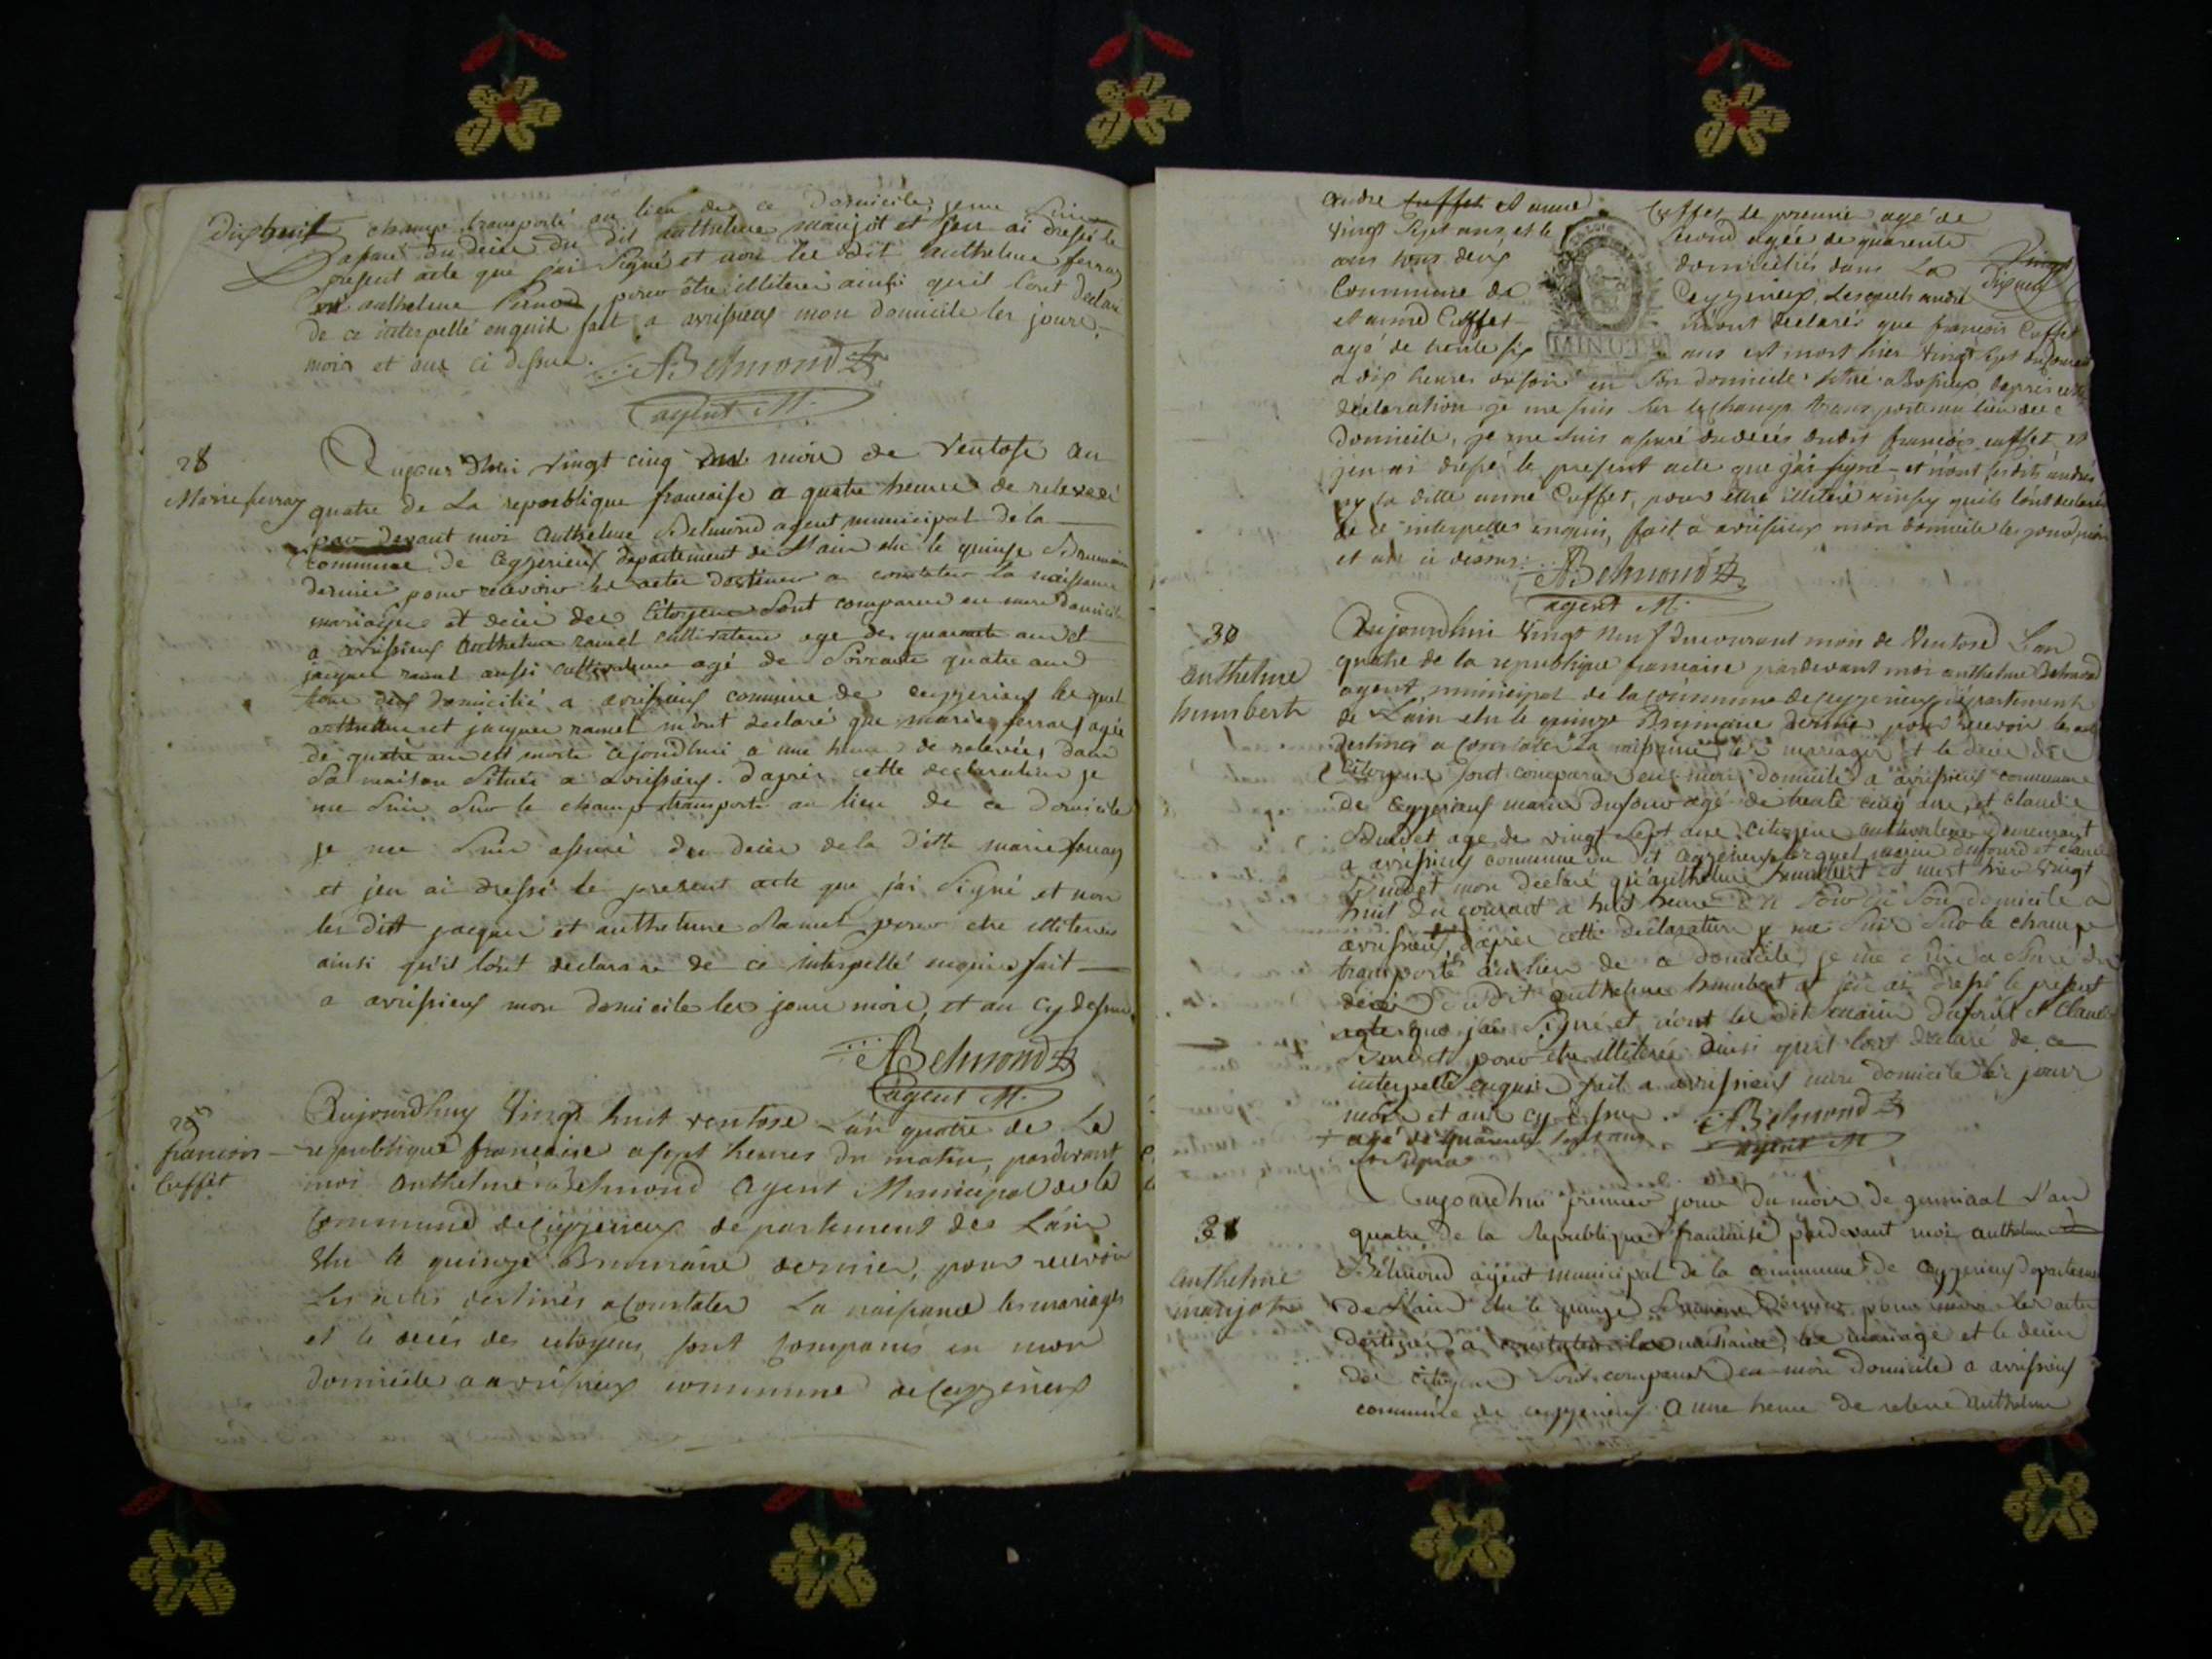 Dixhuit
champ transporté au lieu de ce Domicile, je me suis
assuré du décès du dit anthelme manjot et jen ai dressé le
present acte que j'ai signé et non les dit anthelme ferraz
et anthelme pour être illiterés ainsi qu'il l'ont declaré
de ce interpellé enquis fait a avrissieux mon domicile les jours,
mois et an ci dessus.
ABelmond
agent M.
28
Marie ferraz
Aujourdhui vingt cinq du mois de Ventose an
quatre de La republique francaise a quatre heures de relevée
par devant moi anthelme Belmond agent municipal de la
commune de Ceyzerieux departement de l'ain elu le quinze Brumaire
dernier pour recevoir les actes destinés a constater la naissance
mariages et décès des Citoyens sont comparus en mon domicile
a avrissieux anthelme ramel cultivateur agé de quarante ans et
jacques ramel aussi cultivateur agé de soixante quatre ans
tous deux domicilié a avrissieux commune de ceyzerieux les quel
anthelme et jacques ramel m'ont declaré que marie ferraz agée
de quatre ans est morte aujourdhui a une heure de relevée, dans
sa maison située a avrissieux. d'après cette declaration je
me suis sur le champ transporté au lieu de ce domicile
je me suis assuré du decès de la ditte marie ferraz
et jen ai dressé le present acte que j'ai signé et non
les ditt jacques et anthelme Ramel pour etre illiterés
ainsi qu'il l'ont declaré de ce interpellé enquis fait
a avrissieux mon domicile les jour mois, et an cy dessus.
ABelmond
agent M.
29
francois
Cuffet
Aujourdhuy Vingt huit ventose L'an quatre de La
republique francaise a sept heures du matin, pardevant
moi anthelme Belmond agent Municipal de la
Commune de Ceyzerieux departement de L'ain
Elu le quinze Brumaire dernier, pour recevoir
Les actes destinés a Constater La naissance les mariages
et le décès des citoyens, sont Comparus en mon
domicile a avrissieux commune de Ceyzerieux
andre Cuffet et anne Cuffet le premier agé de
Vingt Sept ans, et le second agée de quarente
ans tous deux domiciliés dans La
Vingt
Dixneuf
Commune de Ceyzerieux, Lesquels andré
et anne Cuffet m'ont declarés que francois Cuffet
MINUTE
agé de trente six ans est mort hier vingt sept du courant
a dix heures du soir en son domicile situé a avrissieux daprès cette
déclaration je me suis sur le champs transporté au lieu de ce
domicile, je me suis assuré du décès dudit francois cuffet, et
jen ai dressé le present acte que j'ai signé et n'ont lesdits andré
ny la ditte anne Cuffet, pour etre illiteré ainsy quils l'ont declaré
de ce interpellés enquis, fait a avrissieux mon domicile les jour, mois
et an ci dessus.
ABelmond
agent M.
30
anthelme
humbert
Aujourdhui Vingt Neuf du courant mois de Ventose L'an
quatre de la republique francaise pardevant moi anthelme Belmond
agent municipal de la commune de Ceyzerieux departement
de L'ain elu le quinze Brumaire dernier pour recevoir les actes
destinés a constater la naissance les mariages et le decès des
Citoyens sont comparus en mon domicile a avrissieux commune
de Ceyzerieux marin dufour agé de trente cinq ans, et claude
agé de vingt sept ans citoyens cultivateurs demeurant
a avrissieux commune du dit Ceyzerieux lesquel marin dufour et claude
mon declaré qu'anthelme humbert est mort hier vingt
huit du courant a huit heure du soir en son domicile a
avrissieux, d'après cette declaration je me suis sur le champ
transporté au lieu de ce domicile, je me suis assuré du
décès dudit anthelme humbert et jen ai dressé le present
acte que j'ai signé et n'ont les dit marin dufour et Claude
pour etre illiterés ainsi qu'il l'ont declaré de ce
interpellé enquis fait a avrissieux mon domicile les jour
mois et an cy dessus.
ABelmond
agent M
+ agé de quarente sept ans
31
anthelme
manjot
Aujourdhui premier jour du mois de germinal L'an
quatre de la Republique francaise pardevant moi anthelme
Belmond agent municipal de la commune de Ceyzerieux departement
de L'ain elu le quinze Brumaire dernier pour recevoir les actes
destinés a constater la naissance, les mariage et le decès
des citoyens sont comparus en mon domicile a avrissieux
commune de ceyzerieux a une heure de relevée anthelme